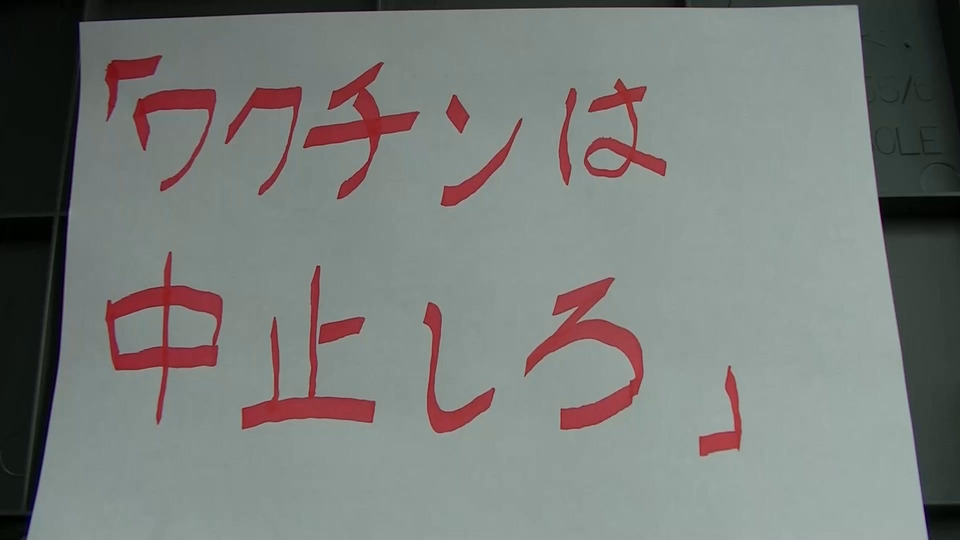 「ワクチンは
中止しろ」
OLE